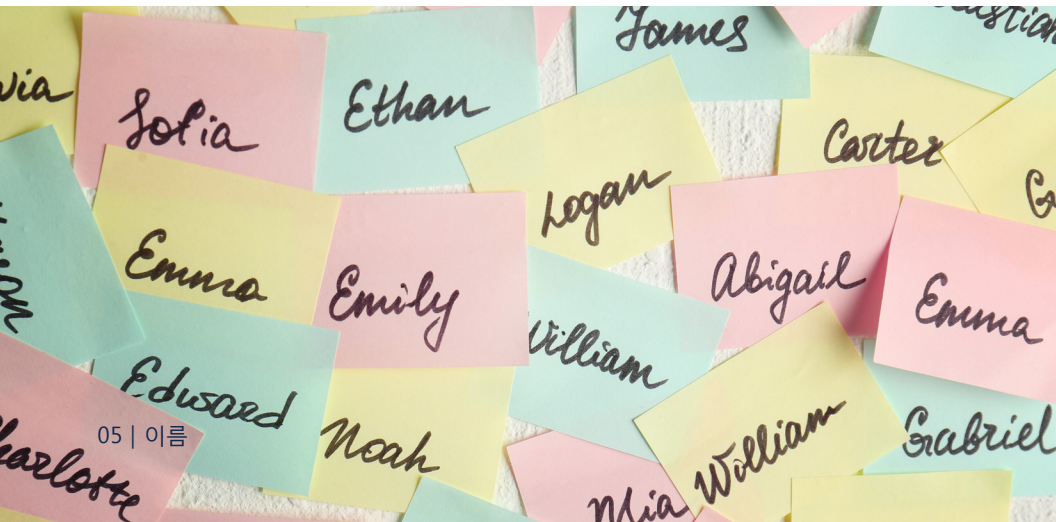 James
Sofia
Ethan
Carter
Logan
Emma
Emily
Abigail
Emma
William
Edward
05 | 이름
Noah
William
Gabriel
Mia